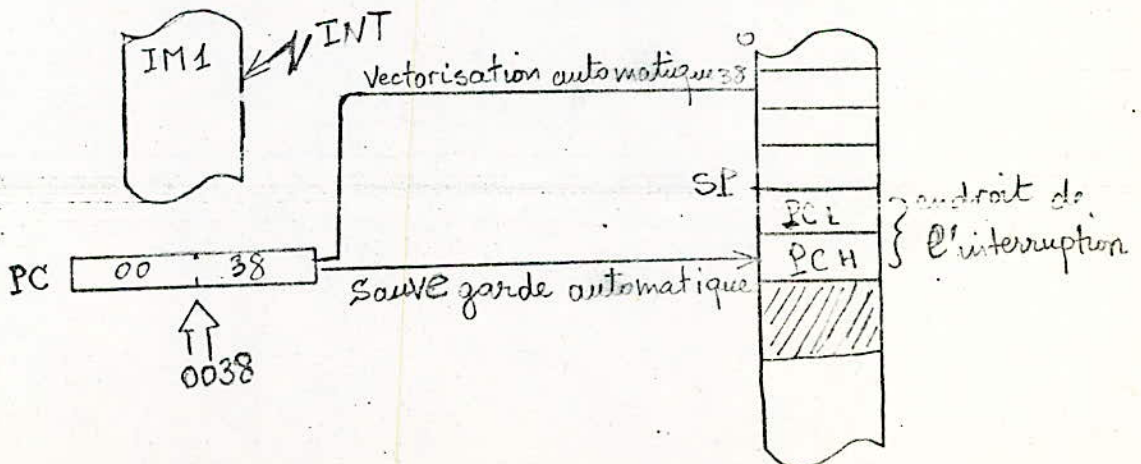 IM1
INT
0
Vectorisation automatique 38
SP
PCL
endroit de
l'interruption
PC 00 38
PCH
Sauvegarde automatique
0038